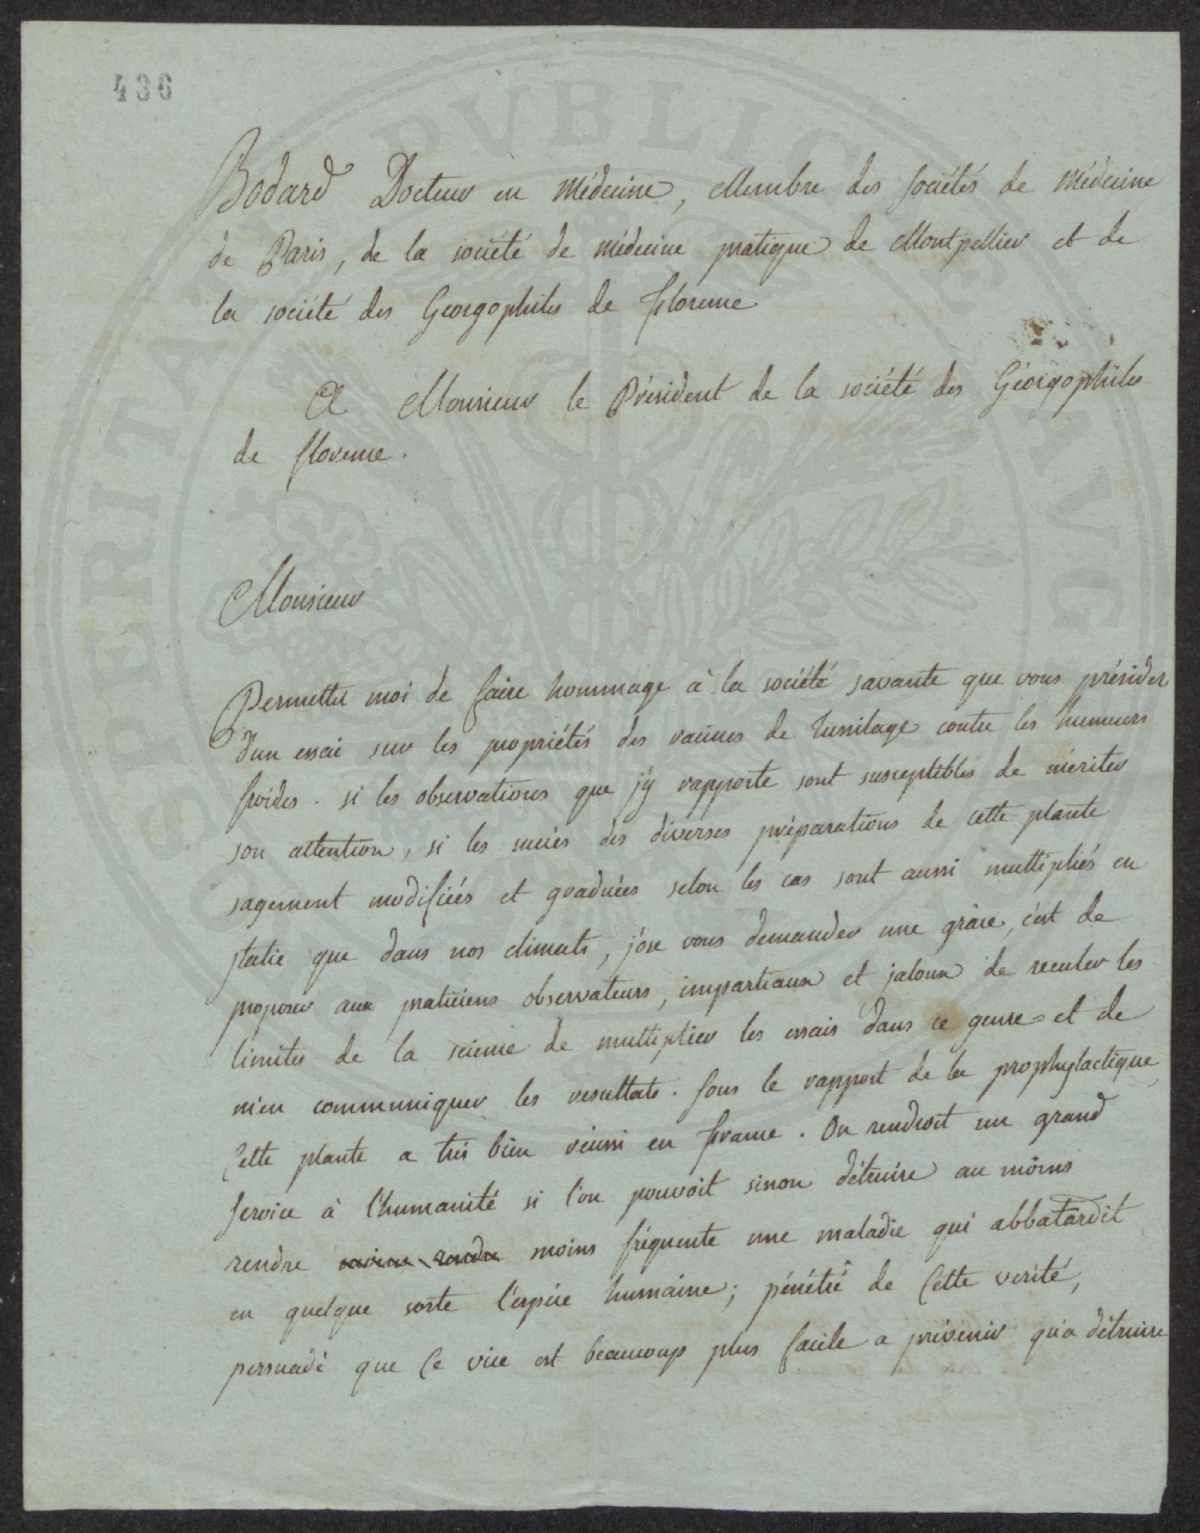 436
Bodard Docteur en Médecine, Membre des sociétés de Médecine
de Paris, de la société de médecine pratique de Montpellier et de
la société des Georgophiles de florence.
A Monsieur le Président de la société des Géorgophiles
de florence.
Monsieur
Permettez moi de faire hommage à la société savante que vous présidez
d'un essai sur les propriétés des racines de Tussilage contre les humeurs
froides. si les observations que j'y rapporte sont susceptibles de mériter
son attention, si les succès des diverses préparations de cette plante
sagement modifiées et graduées selon les cas sont aussi multipliés en
italie que dans nos climats, j'ose vous demander une grâce, c'est de
proposer aux praticiens observateurs, impartiaux et jaloux de reculer les
limites de la science de multiplier les essais dans ce genre et de
m'en communiquer les resultats. sous le rapport de la prophylactique,
Cette plante a très bien réussi en france. On rendroit un grand
service à l'humanité si l'on pouvoit sinon détruire au moins
rendre moins fréquente une maladie qui abbatardit
en quelque sorte l'espèce humaine; pénétré de Cette verité,
persuadé que Ce vice est beaucoup plus facile a prévenir qu'a détruire